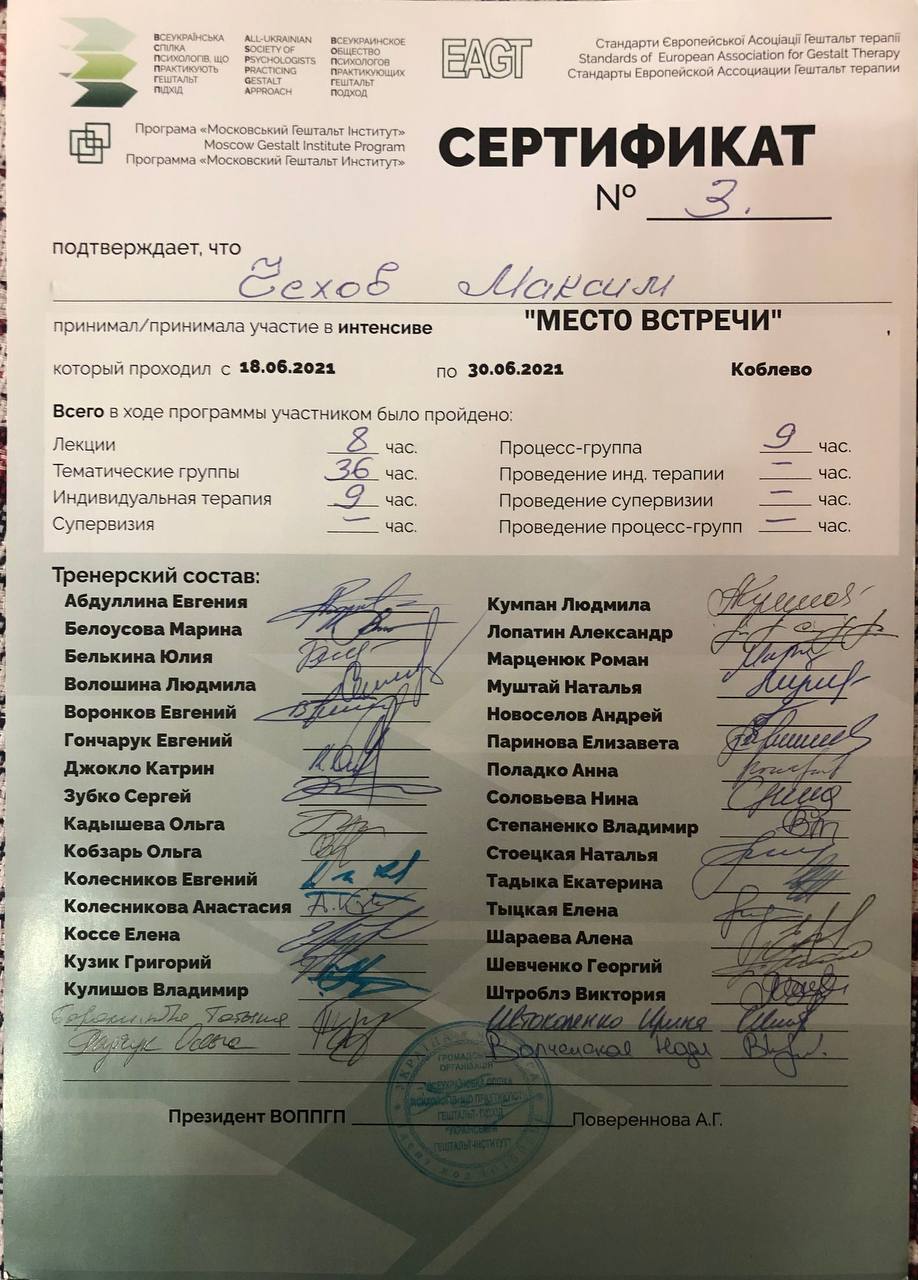 ВСЕУКРАЇНСЬКА
СПІЛКА
ПСИХОЛОГІВ, ЩО
ПРАКТИКУЮТЬ
ГЕШТАЛЬТ
ПІДХІД
ALL-UKRAINIAN
SOCIETY OF
PSYCHOLOGISTS
PRACTICING
GESTALT
APPROACH
ВСЕУКРАИНСКОЕ
ОБЩЕСТВО
ПСИХОЛОГОВ
ПРАКТИКУЮЩИХ
ГЕШТАЛЬТ
ПОДХОД
EAGT
Стандарти Європейської Асоціації Гештальт терапії
Standards of European Association for Gestalt Therapy
Стандарты Европейской Ассоциации Гештальт терапии
Програма «Московський Гештальт Інститут»
Moscow Gestalt Institute Program
Программа «Московский Гештальт Институт»
СЕРТИФИКАТ
№ 3.
подтверждает, что
Чехов Максим
принимал/принимала участие в интенсиве "МЕСТО ВСТРЕЧИ" ,
который проходил с 18.06.2021 по 30.06.2021 Коблево
Всего в ходе программы участником было пройдено:
Лекции 8 час. Процесс-группа 9 час.
Тематические группы 36 час. Проведение инд. терапии – час.
Индивидуальная терапия 9 час. Проведение супервизии – час.
Супервизия – час. Проведение процесс-групп – час.
Тренерский состав:
Абдуллина Евгения Кумпан Людмила
Белоусова Марина Лопатин Александр
Белькина Юлия Марценюк Роман
Волошина Людмила Муштай Наталья
Воронков Евгений Новоселов Андрей
Гончарук Евгений Паринова Елизавета
Джокло Катрин Поладко Анна
Зубко Сергей Соловьева Нина
Кадышева Ольга Степаненко Владимир
Кобзарь Ольга Стоецкая Наталья
Колесников Евгений Тадыка Екатерина
Колесникова Анастасия Тыцкая Елена
Коссе Елена Шараева Алена
Кузик Григорий Шевченко Георгий
Кулишов Владимир Штроблэ Виктория
Татьяна Ирина
Надя
ГРОМАДСЬКА
ОРГАНІЗАЦІЯ
ГЕШТАЛЬТ-ПІДХІД
"УКРАЇНСЬКИЙ
ГЕШТАЛЬТ-ІНСТИТУТ"
Президент ВОППГП Повереннова А.Г.